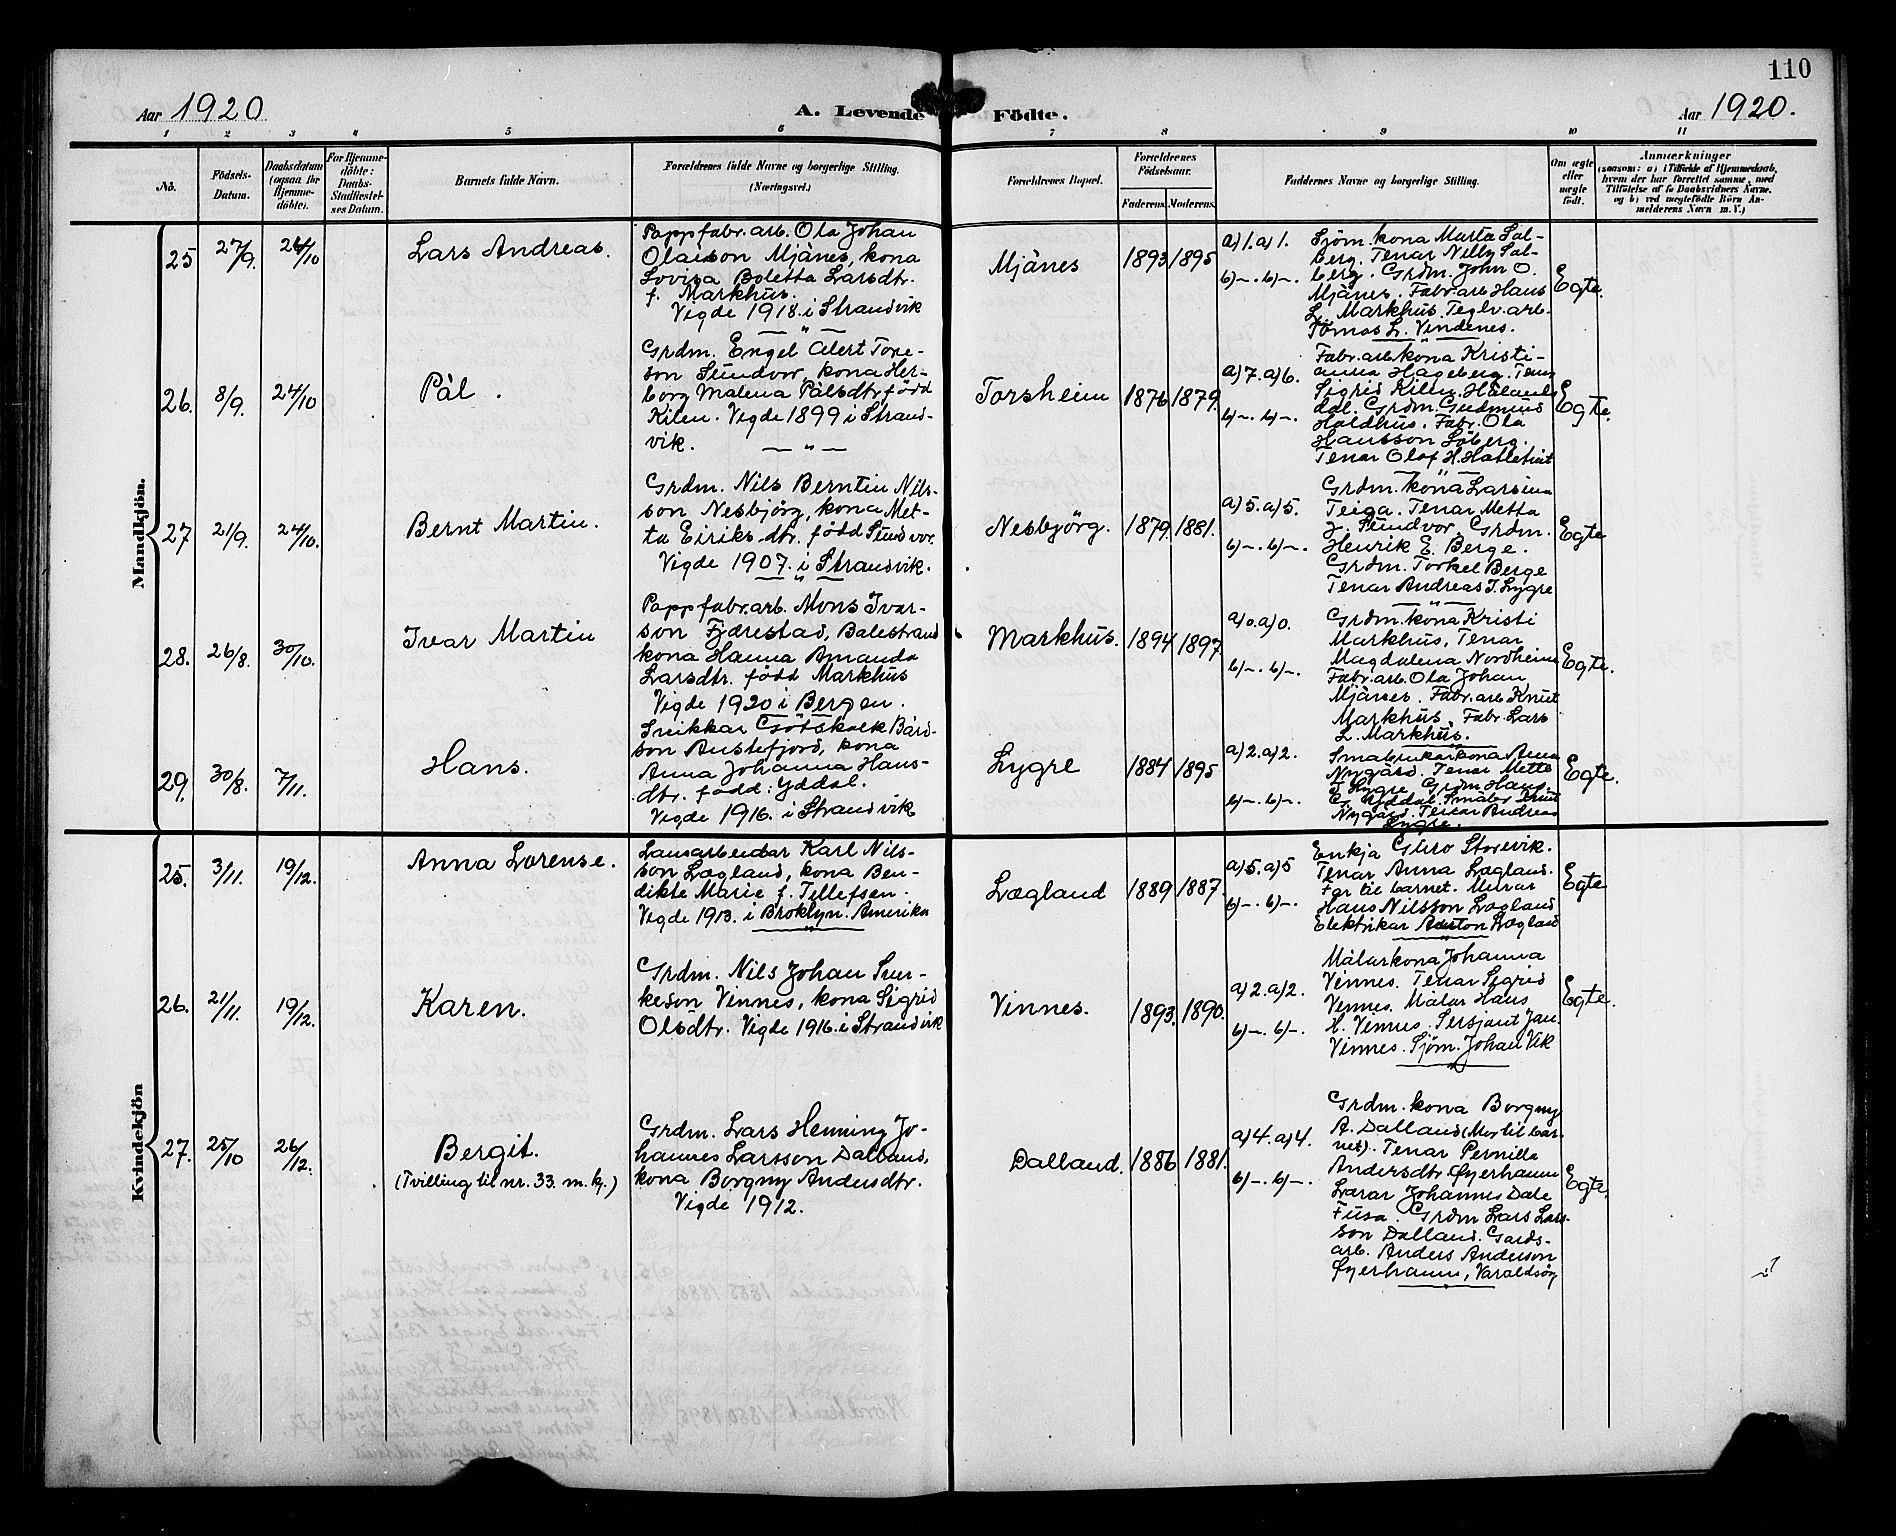 110
Aar 1920
A. Levende Födte.
Aar 1920.
1 2 3 4 5 6 7 8 9 10 11
No.
Födsels-
Datum.
Daabsdatum
(ogsaa for
Hjemme-
döbte).
For Hjemme-
döbte:
Daabs-
Stadfæstel-
ses Datum.
Barnets fulde Navn.
Forældrenes fulde Navne og borgerlige Stilling.
(Næringsvei.)
Forældrenes Bopæl.
Forældrenes
Födselsaar.
Faderens. Moderens.
Faddernes Navne og borgerlige Stilling.
Om ægte
eller
uægte
födt.
Anmærkninger
(saasom: a) i Tilfælde af Hjemmedaab,
hvem der har forrettet samme, med
Tilföielse af to Daabsvidners Navne.
og b) ved uegtefödte Börn An-
melderens Navn m. V.)
Mandkjön.
25 27/9. 24/10 Lars Andreas.
Pappfabr.arb. Ola Johan
Olaison Mjånes, kona
Lovisa Boletta Larsdtr.
f. Markhus.
Vigde 1918. i Strandvik
Mjånes 1893 1895
a) 1. a) 1.
b) –. b) –.
Sjöm. kona Marta Sol-
berg. Tenar Nelly Sol-
berg. Grdm. John O.
Mjånes. Fabr.arb Hans
L. Markhus. Teglv.arb.
Tomas L. Vindenes.
Egte.
26. 8/9. 24/10 Pål.
Grdm. Engel Alert Tore-
son Sundvor, kona Her-
borg Malena Pålsdtr född
Kilen. Vigde 1899 i Strand-
vik.
Torsheim 1876 1879.
a) 7. a) 6.
b) –. b) –.
Fabr.arb kona Kristi-
anna Hageberg. Tenar
Sigrid Kilen. Håland
dal. Grdm. Gudmund
Holdhus. Fabr. Ola
Hansson Söberg.
Tenar Olaf H. Hatletveit
Egte.
27 21/9. 24/10. Bernt Martin.
Grdm. Nils Berntin Nils-
son Nesbjörg, kona Met-
ta Eiriks dtr. född Sundvor.
Vigde 1907. i Strandvik.
Nesbjörg. 1879. 1881.
a) 5. a) 5.
b) –. b) –.
Grdm. kona Larsina
Teiga. Tenar Metta
J. Sundvor. Grdm.
Henrik E. Berge.
Grdm. Torkel Berge
Tenar Andreas J. Lygre
Egte
28. 26/8. 30/10. Ivar Martin
Pappfabr.arb. Mons Ivar-
son Fjærestad, Balestrand
kona Hanna Amanda
Larsdtr. född Markhus
Vigde 1920 i Bergen.
Markhus. 1894 1897.
a) 0. a) 0.
b) –. b) –.
Grdm. kona Kristi
Markhus, Tenar
Magdalena Nordheim
Fabr.arb. Ola Johan
Mjånes. Fabr.arb Knut
Markhus. Fabr. Lars
L. Markhus.
Egte.
29. 30/8. 7/11. Hans.
Snikkar Götskalk Bård-
son Austefjord, kona
Anna Johanna Hans-
dtr. född: Yddal.
Vigde 1916. i Strandvik
Lygre 1884 1895
a) 2. a) 2.
b) –. b) –.
Småbrukarkona Anna
Nygård. Tenar Metta
Lygre. Grdm Hans
G. Yddal. Småbr. Knut
Nygård. Tenar Andreas
Lygre.
Egte.
Kvindekjön
25. 3/11. 19/12. Anna Lorense.
Lausarbeidar Karl Nils-
son Lægland, kona Ben-
dikte Marie f. Tellefsen.
Vigde 1913. i Broklyn. Amerika
Lægland 1889 1887.
a) 5. a) 5
b) –. b) –.
Enkja Guro Storevik.
Tenar Anna Lægland.
Far til barnet. Murar
Hans Nilsson Lægland
Elektrikar Anton Lægland
Egte
26. 21/11. 19/12. Karen.
Grdm. Nils Johan Sver-
keson Vinnes, kona Sigrid
Olsdtr. Vigde 1916. i Strandvik
Vinnes. 1893. 1890.
a) 2. a) 2.
b) –. b) –.
Målarkona Johanna
Vinnes. Tenar Sigrid
Vinnes. Målar Hans
H. Vinnes. Sersjant Jan
Vinnes. Sjöm. Johan Vik
Egte.
27. 25/10 26/12. Bergit.
(Tvilling til nr. 33. m. kj.)
Grdm. Lars Henning Jo-
hannes Larsson Dalland,
kona Borgny Andersdtr.
Vigde 1912.
Dalland. 1886 1881.
a) 4. a) 4.
b) –. b) –.
Grdm. kona Borgny
A. Dalland (Mor til bar-
net). Tenar Pernilla
Andersdtr Öyerhamn
Lærar Johannes Dale
Fusa. Grdm Lars Lars-
son Dalland. Gards-
arb. Anders Anderson
Öyerhamn, Varaldsöy
Egte.